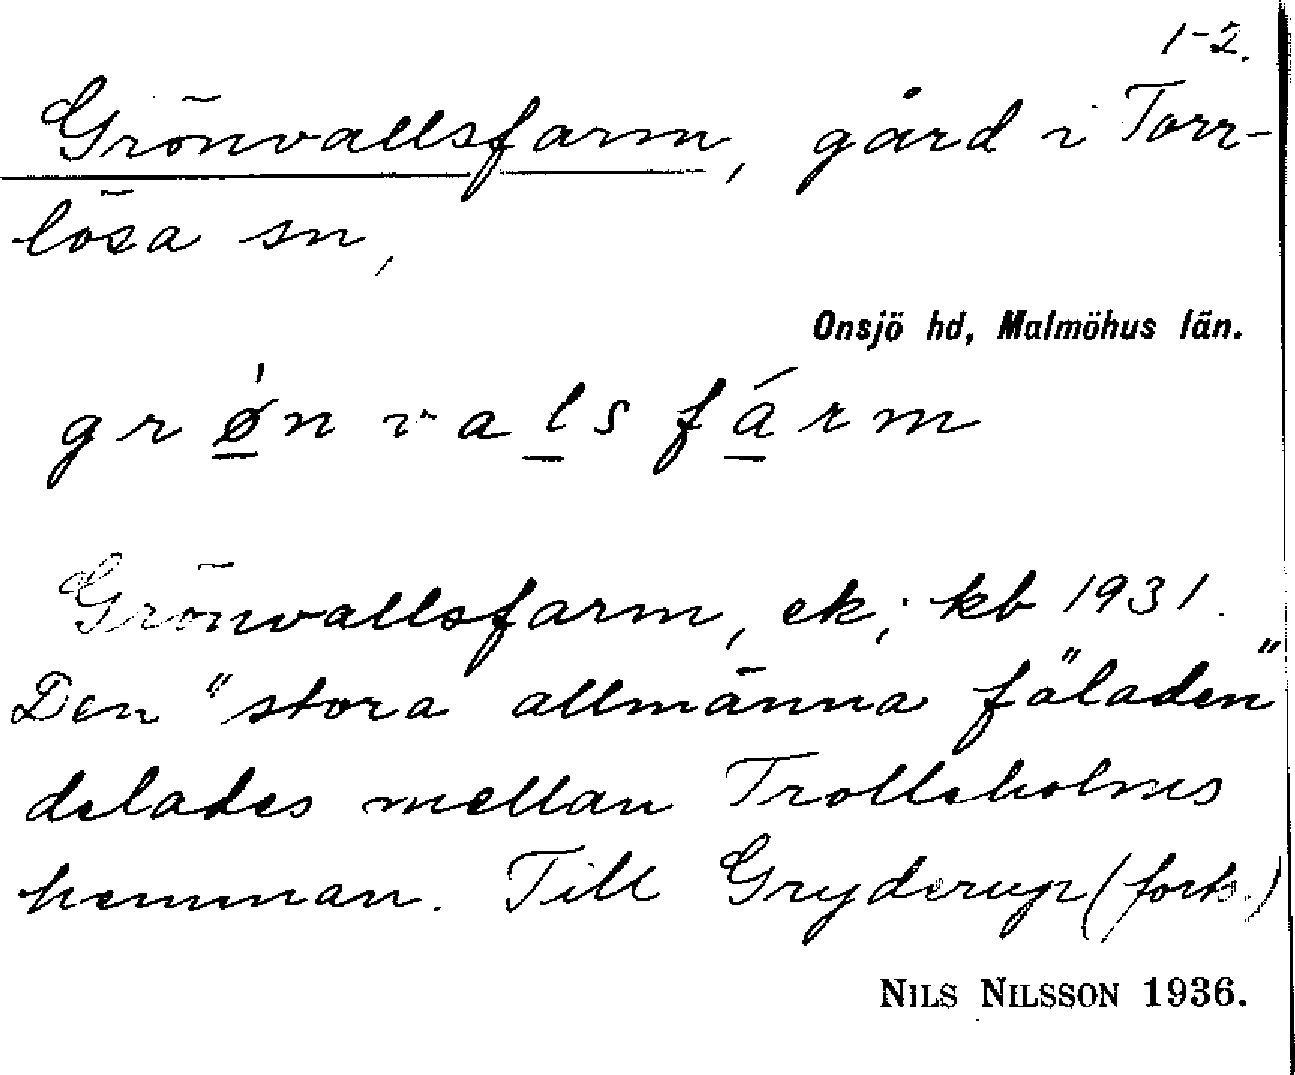 1-2.
Grönvallsfarm, gård i Torr-
lösa sn,
Onsjö hd, Malmöhus län.
grǿnvalsfárm
Grönvallsfarm, ek; kb 1931.
Den "stora allmänna fäladen"
delades mellan Trolleholms
hemman. Till Gryderup (forts.)
NILS NILSSON 1936.